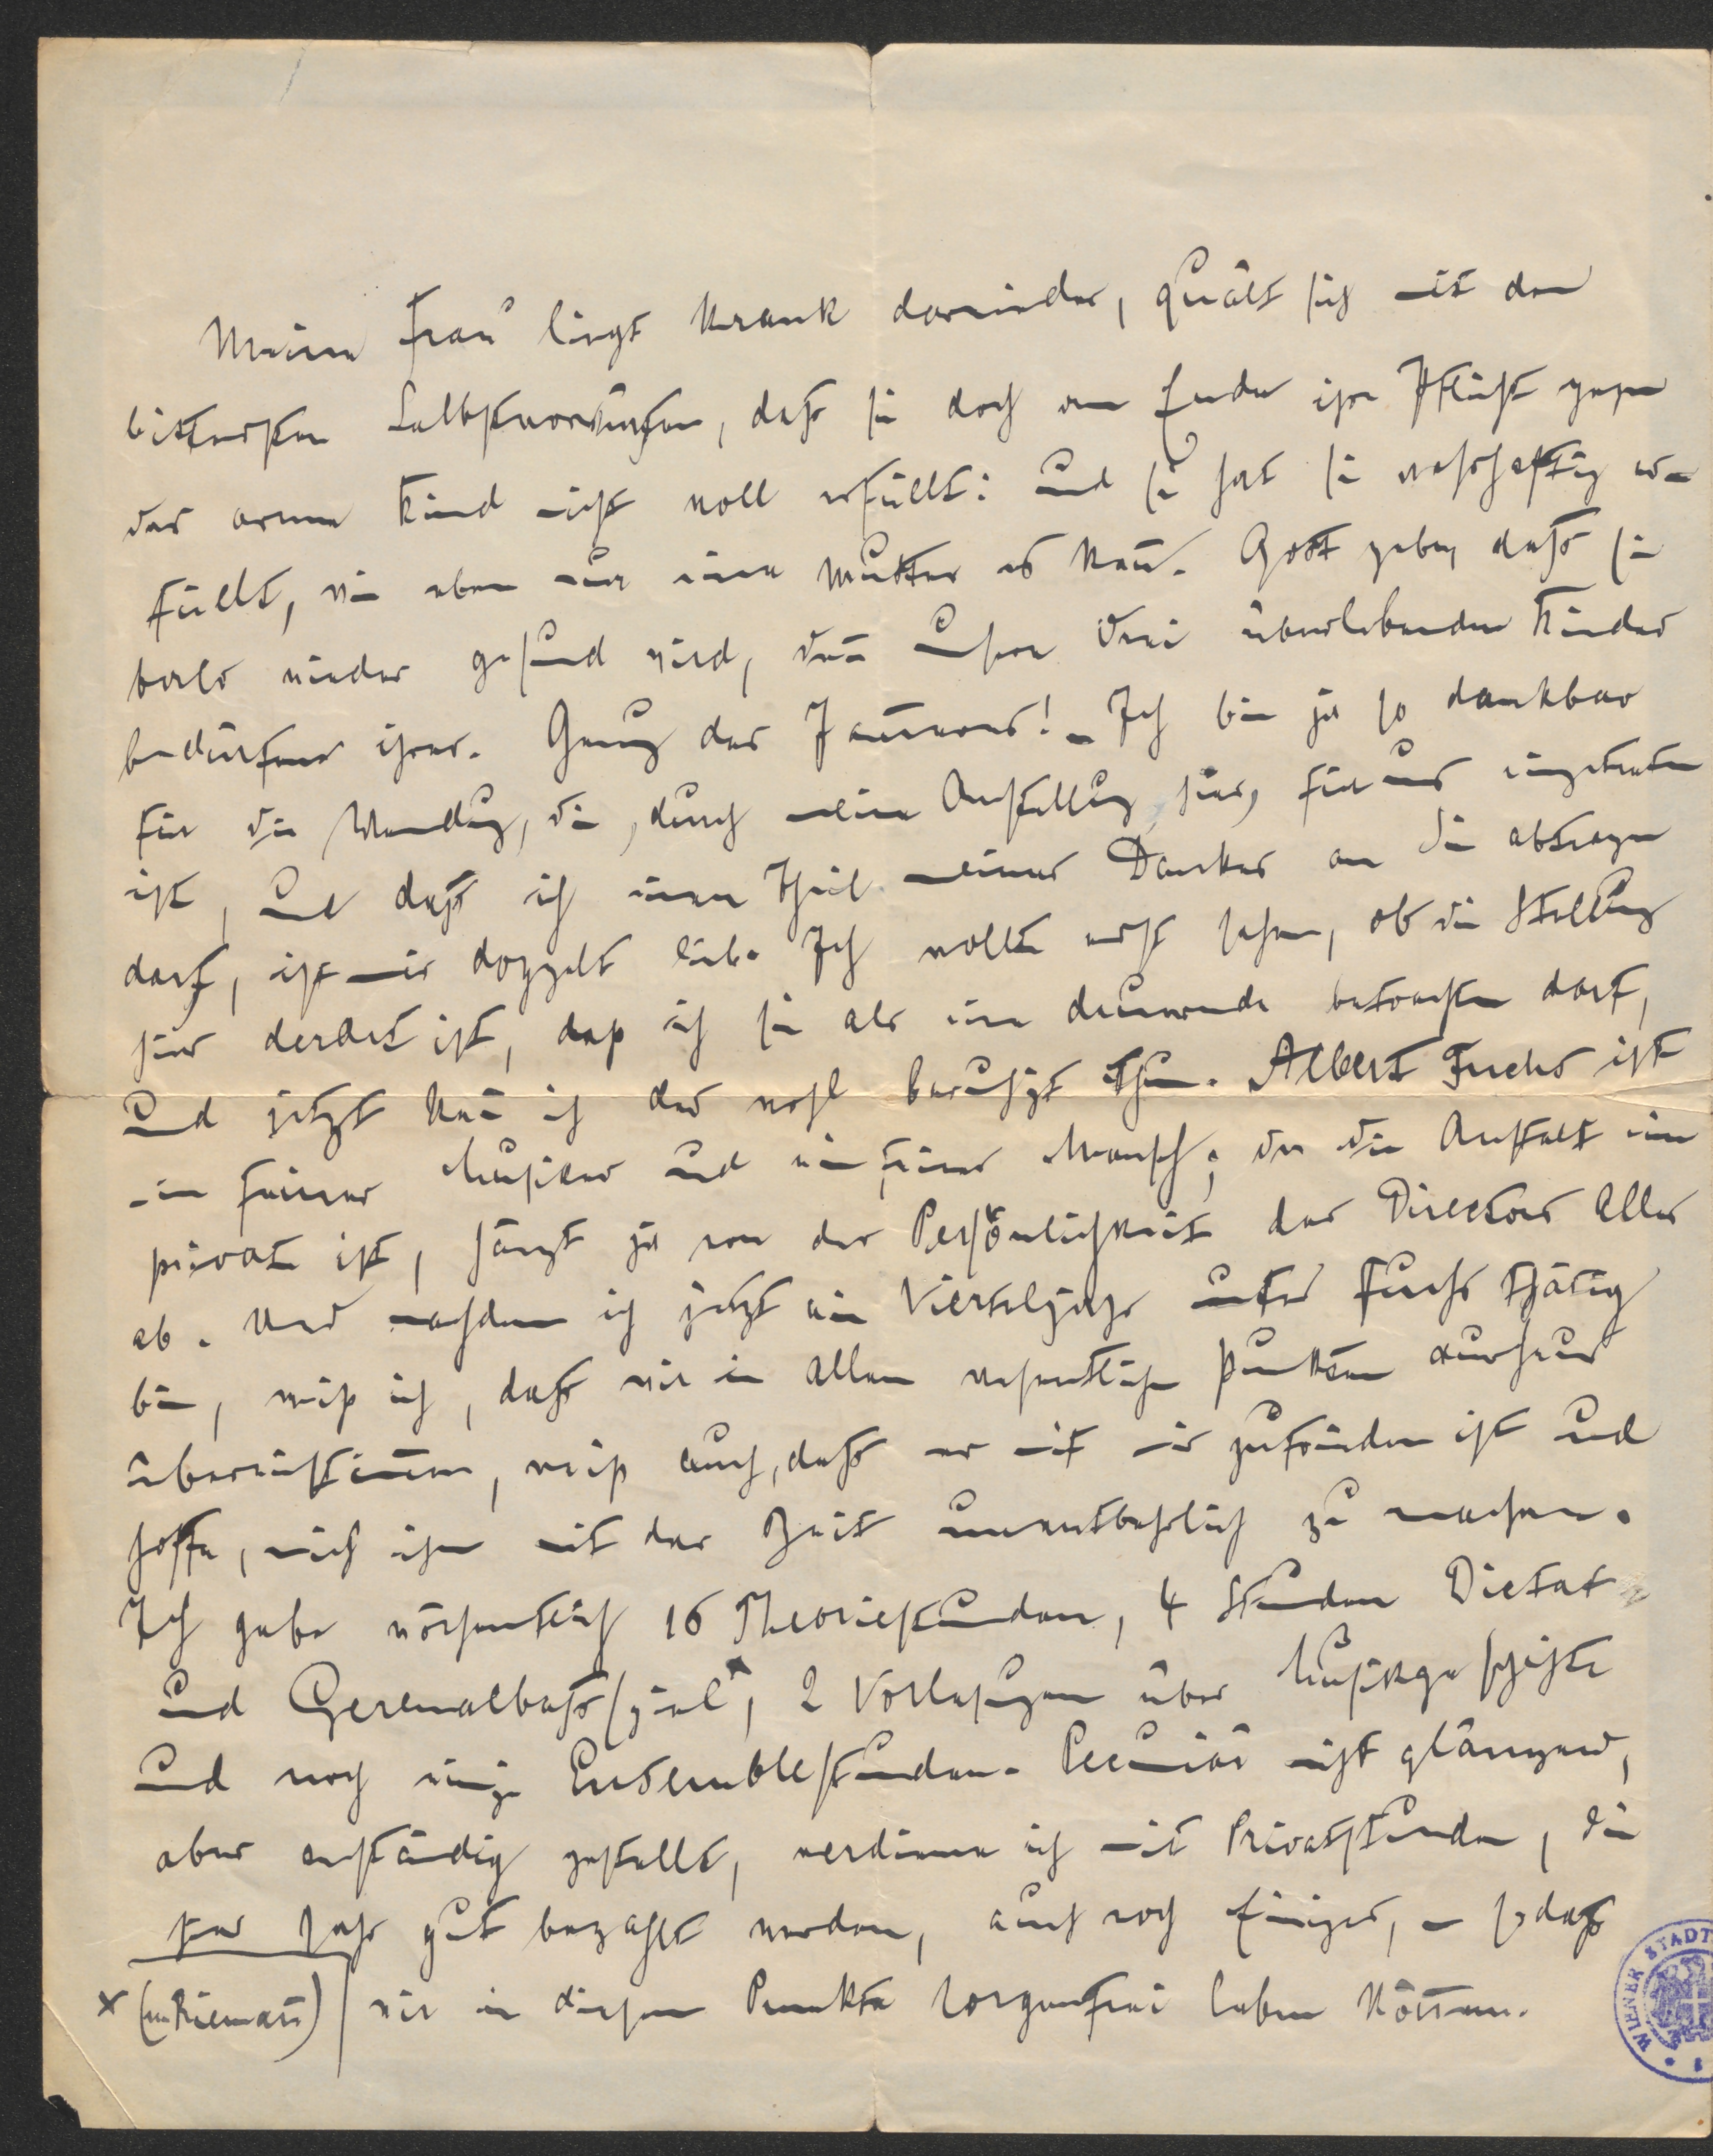 Meine Frau liegt krank darnieder, quält sich mit den
bittersten Selbstvorwürfen, daß sie doch am Ende ihre Pflicht gegen
das arme Kind nicht voll erfüllt: und sie hat sie wahrhaftig er-
füllt, wie eben nur eine Mutter es kann̄. Gott gebe, daß sie
bald wieder gesund wird, den̄ unsere drei überlebenden Kinder
bedürfens ihrer. Genug des Jam̄ers! – Ich bin ja so dankbar
für die Wendung, die, durch meine Anstellung hier, für uns eingetreten
ist, und daß ich einen Theil meines Dankes an Sie abtragen
darf, ist mir doppelt lieb. Ich wollte erst sehen, ob die Stellung
hier derart ist, daß ich sie als eine dauernde betrachten darf,
und jetzt kan̄ ich das wohl beruhigt thun. Albert Fuchs ist
ein feiner Musiker und ein feiner Mensch; da die Anstalt eine
private ist, hängt ja von der Persönlichkeit des Directors Alles
ab. Und nachdem ich jetzt ein Vierteljahr unter Fuchs thätig
bin, weiß ich, daß wir in allen wesentlichen Punkten durchaus
übereinstim̄en, weiß auch, daß er mit mir zufrieden ist und
hoffe, mich ihm mit der Zeit unentbehrlich zu machen.
Ich gebe wöchentlich 16 Theoriestunden, 4 Stunden Dictat
und Generalbaßspiel x, 2 Vorlesungen über Musikgeschichte
und noch einige Ensemblestunden. Pecuniär nicht glänzend,
aber anständig gestellt, verdiene ich mit Privatstunden, die
hier sehr gut bezahlt werden, auch noch Einiges, – sodaß
x (n. Rieman̄) wir in diesem Punkte sorgenfrei leben kön̄en.
WIENER STADT